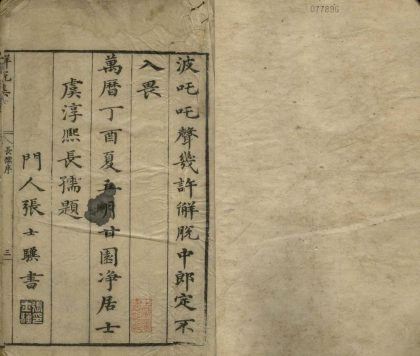 波吒吒聲幾許觧脫中郎定不
入畏
萬曆丁酉夏五朔甘園净居士
虞淳熈長孺題
門人張士驥書
解脫集
長孺序
三
077896